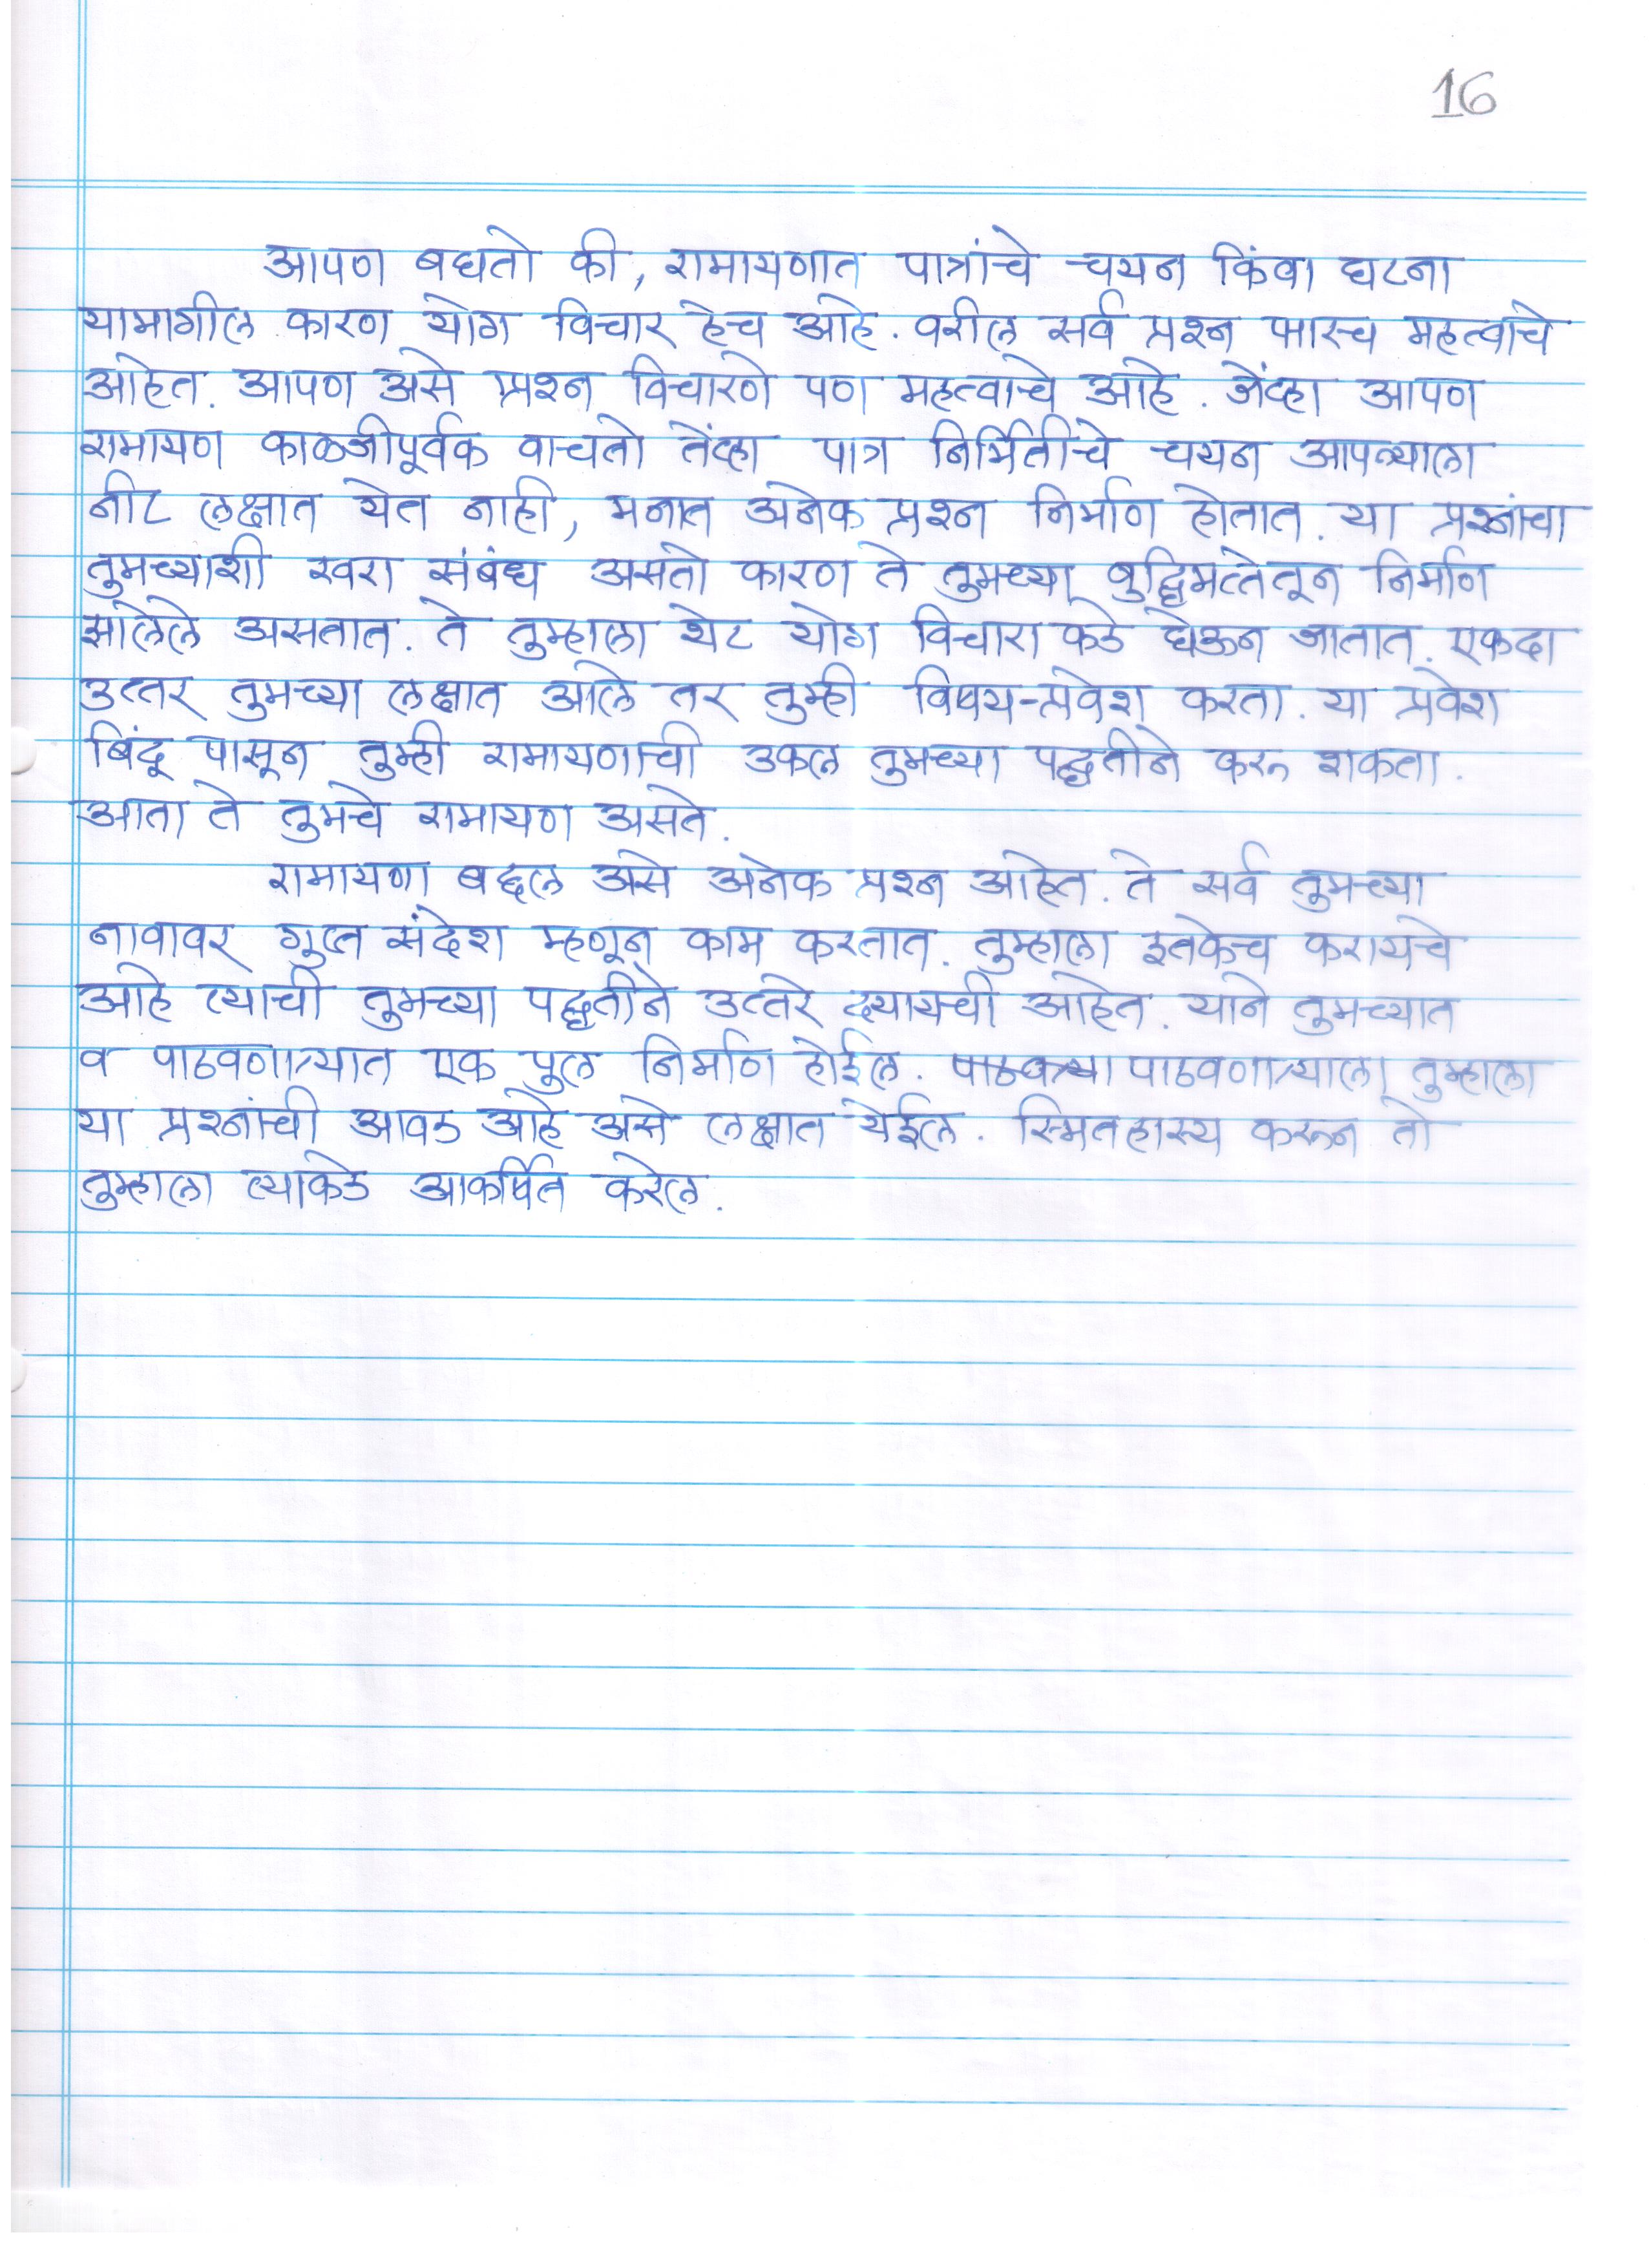 16
आपण बघतो की, रामायणात पात्रांचे चयन किंवा घटना
यामागील कारण योग विचार हेच आहे. वरील सर्व प्रश्न फारच महत्वाचे
आहेत. आपण असे प्रश्न विचारणे पण महत्वाचे आहे. जेंव्हा आपण
रामायण काळजीपूर्वक वाचतो तेंव्हा पात्र निर्मितीचे चयन आपल्याला
नीट लक्षात येत नाही, मनात अनेक प्रश्न निर्माण होतात. या प्रश्नांचा
तुमच्याशी खरा संबंध असतो कारण ते तुमच्या बुद्धिमत्तेतून निर्माण
झालेले असतात. ते तुम्हाला थेट योग विचारा कडे घेऊन जातात. एकदा
उत्तर तुमच्या लक्षात आले तर तुम्ही विषय-प्रवेश करता. या प्रवेश
बिंदू पासून तुम्ही रामायणाची उकल तुमच्या पद्धतीने करू शकता.
आता ते तुमचे रामायण असते.
रामायणा बद्दल असे अनेक प्रश्न आहेत. ते सर्व तुमच्या
नावावर गुप्त संदेश म्हणून काम करतात. तुम्हाला इतकेच करायचे
आहे त्याची तुमच्या पद्धतीने उत्तरे द्यायची आहेत. याने तुमच्यात
व पाठवणाऱ्यात एक पूल निर्माण होईल. पाठवणाऱ्याला तुम्हाला
या प्रश्नांची आवड आहे असे लक्षात येईल. स्मितहास्य करून तो
तुम्हाला त्याकडे आकर्षित करेल.